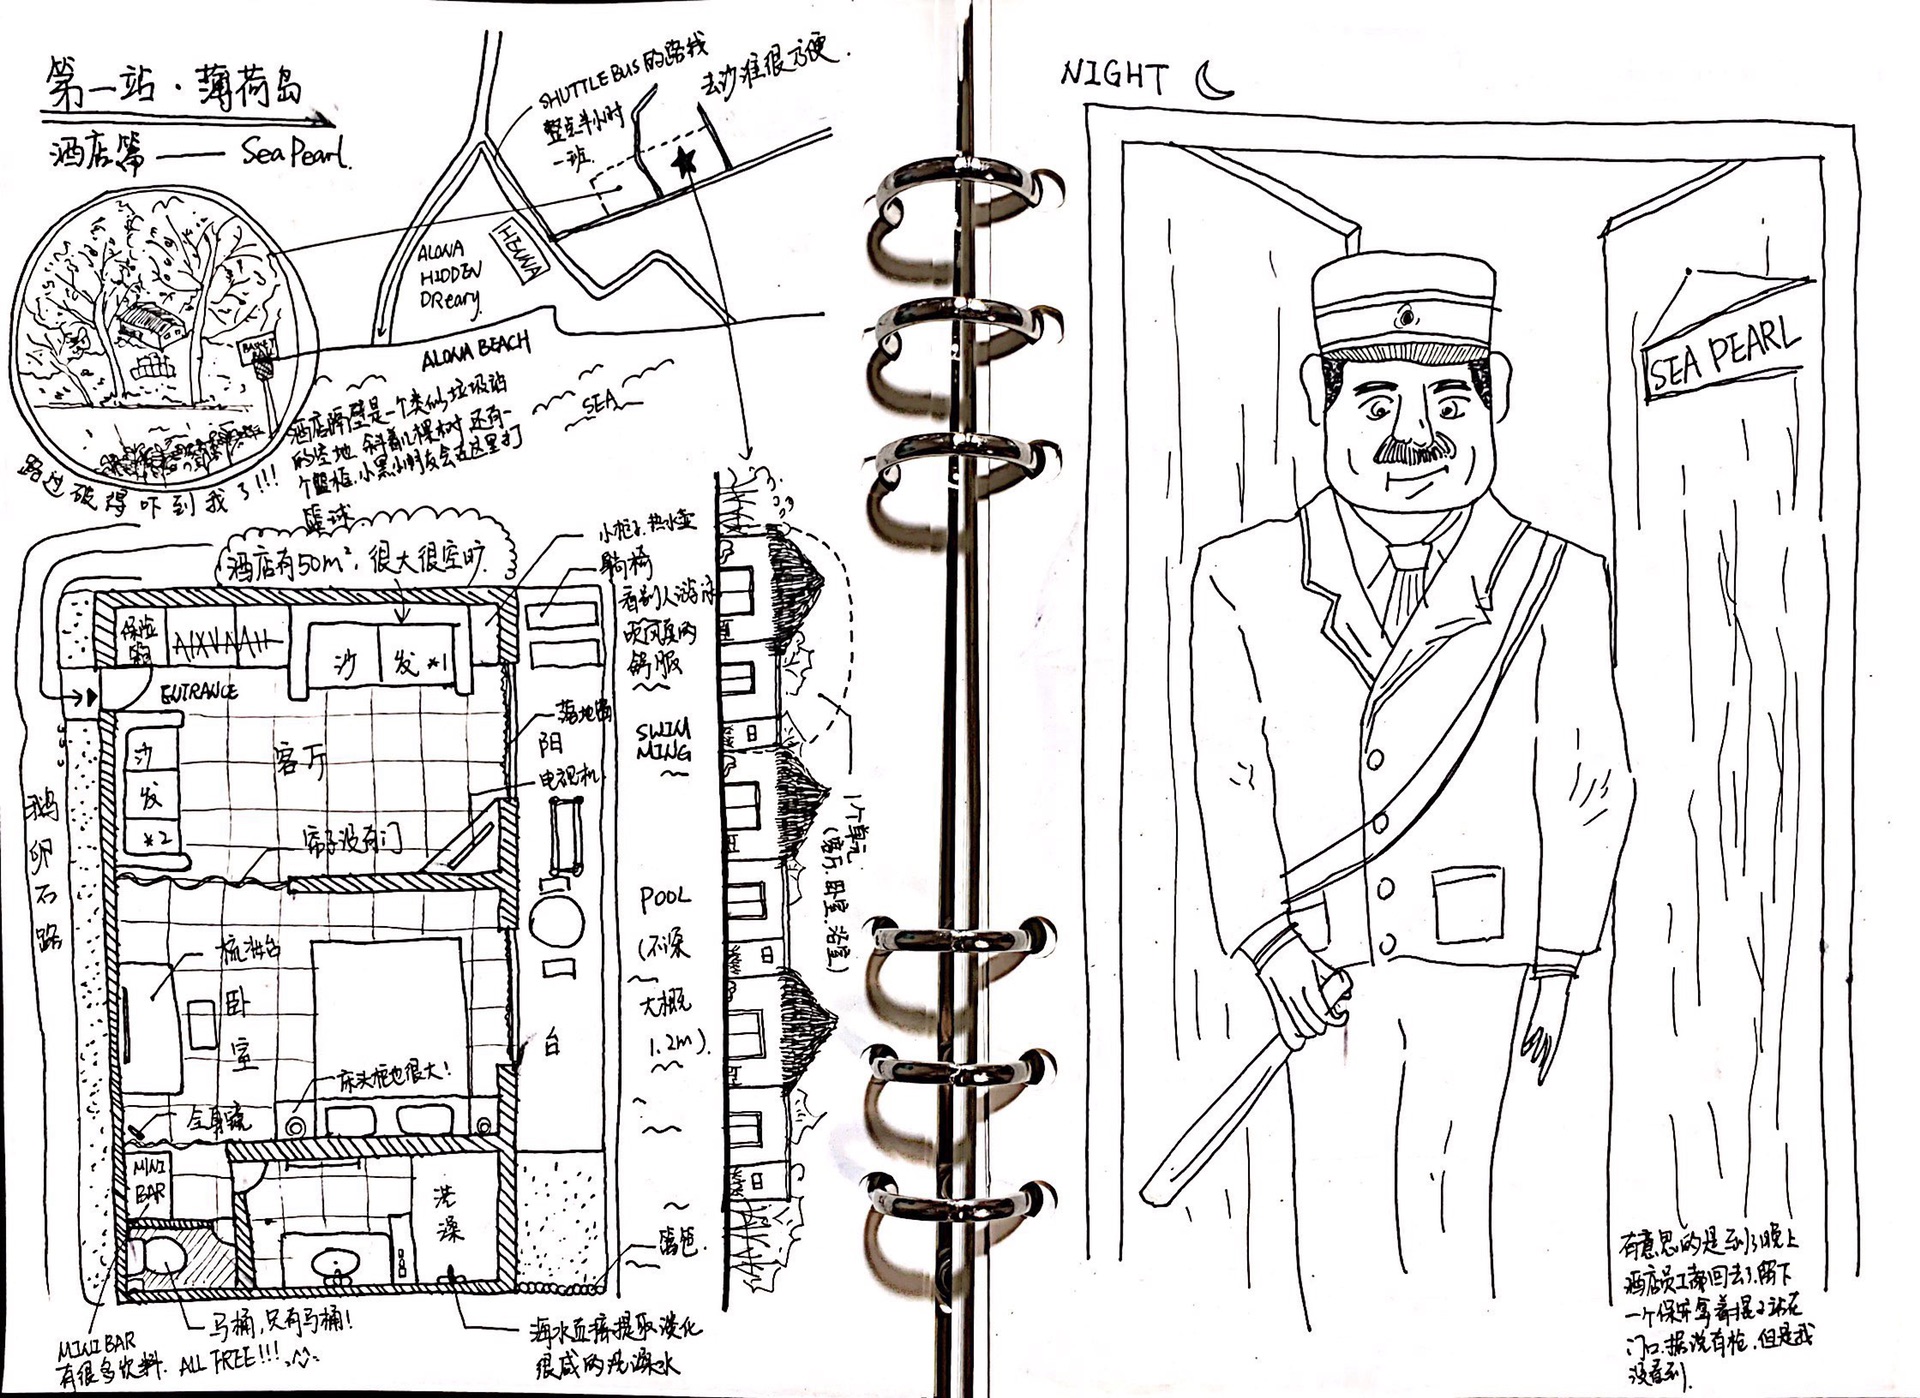 第一站·薄荷岛
酒店篇——Sea Pearl.
SHUTTLE BUS的路线
整点半小时
一班.
去沙滩很方便.
ALONA
HIDDEN
DReary.
HENNA
ALONA BEACH
SEA
BASKET
酒店隔壁是一个类似垃圾站
的空地.斜着几棵树.还有一
个篮框.小黑小朋友会在这里打
篮球
路过破得吓到我了!!!
酒店有50m²,很大很空旷.
小柜子.热水壶
躺椅
看别人游泳
吹河风的
舒服
保险箱
沙发*1
ENTRANCE
沙
发
*2
客厅
落地窗
阳
电视机
帘子没有门
鹅
卵
石
路
梳妆台
卧
室
台
床头柜也很大!
全身镜
MINI
BAR
洗
澡
SWIM
MING
POOL
(不深
大概
1.2m).
1个单元
(客厅.卧室.浴室)
篱笆.
马桶,只有马桶!
MINI BAR
有很多饮料. ALL FREE!!!
海水直接提取淡化
很咸的洗澡水
NIGHT
SEA PEARL
有意思的是到了晚上
酒店员工都回去了.留下
一个保安拿着棍子站在
门口.据说有枪.但是我
没看到.